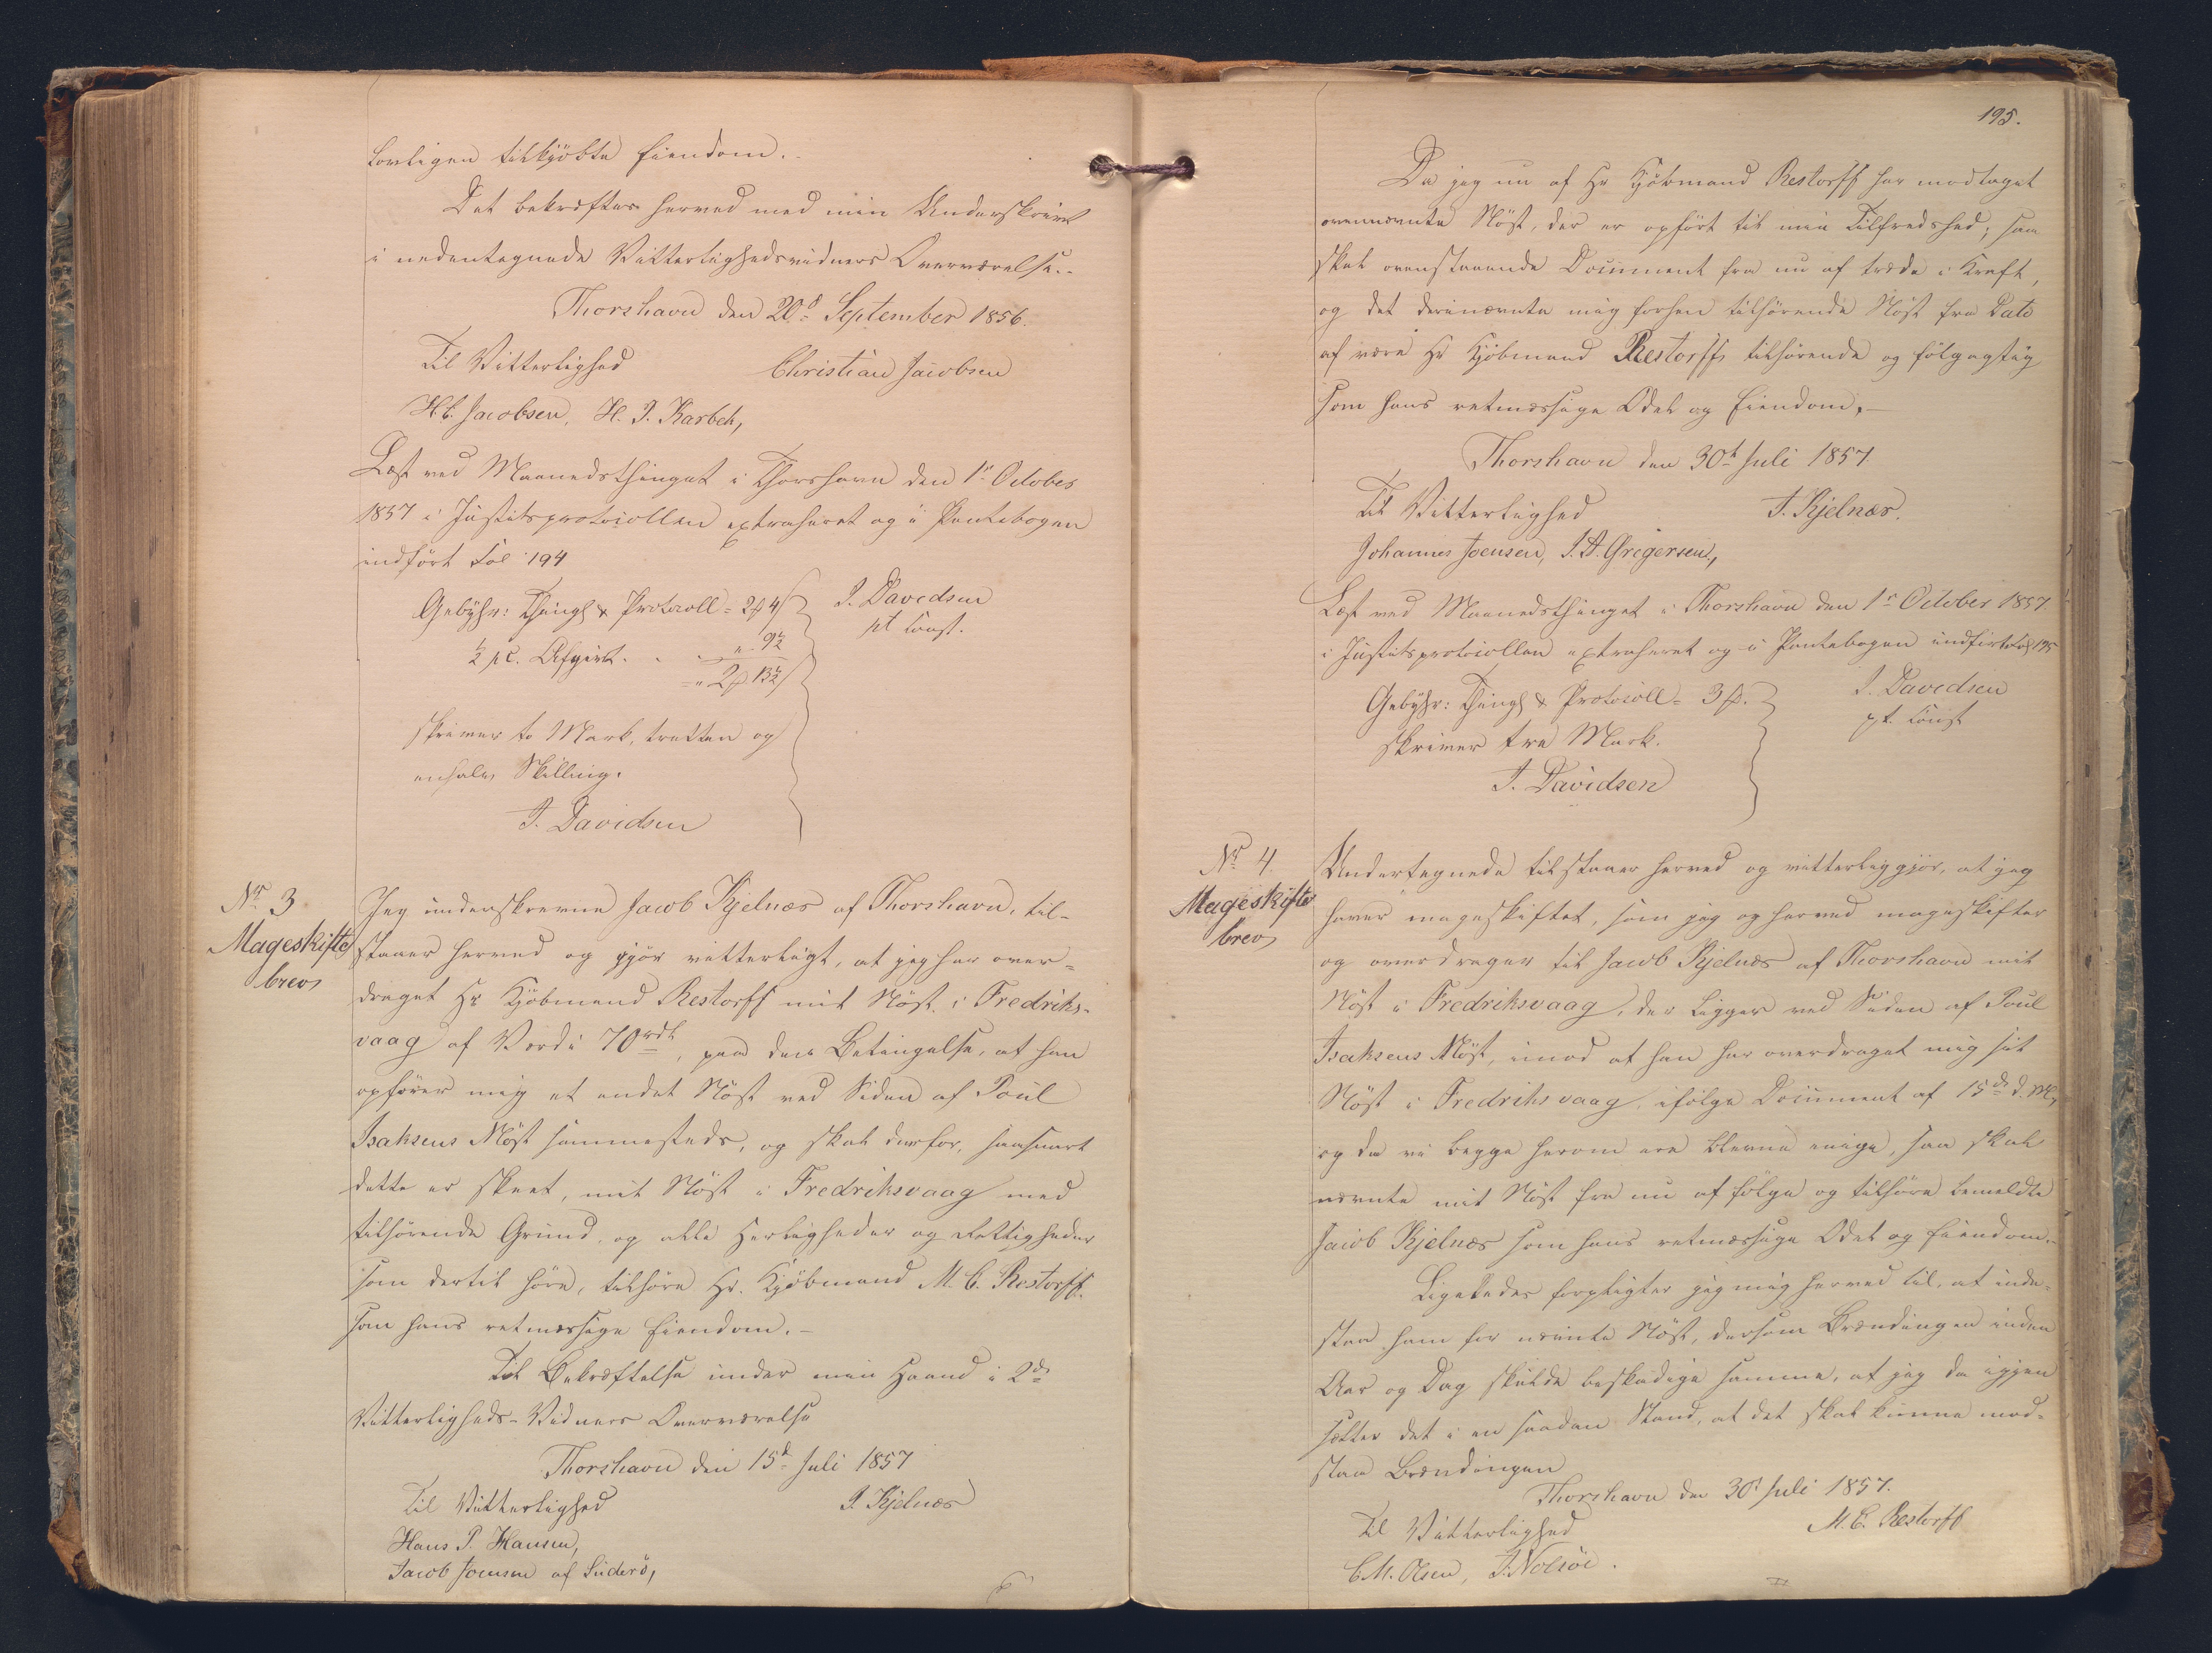 lovligen tilkjöbte Eiendom.-
Det bekræftes herved med min Underskrivt
i nedentegnede Vitterlighedsvidners Overværelse.-
Thorshavn den 20d September 1856.
Til Vitterlighed Christian Jacobsen
H. C. Jacobsen, H. J. Karbech,
Læst ved Maanedsthinget i Thorshavn den 1ste October
1857 i Justitsprotocollen extraheret og i Pantebogen
indfört Fol 194
Gebyhr: Thingl & Protocoll = 2 ₰ 4 ß J. Davidsen
½ pC. Afgivt. . . " 9½ pt Const.
= " 2 ₰ 13½ ß
skriver to Mark, tretten og
enhalv Skilling.
J. Davidsen
No 3 Jeg underskrevne Jacob Kjelnæs af Thorshavn, til-
Mageskifte staaer herved og gjör vitterligt, at jeg har over-
brev draget Hr Kjöbmand Restorff mit Nöst i Fredriks-
vaag af Værdi 70 rdl, paa den Betingelse, at han
opförer mig et andet Nöst ved Siden af Poul
Isaksens Nöst sammesteds, og skal derfor, saasnart
dette er skeet, mit Nöst i Fredriksvaag med
tilhörende Grund, og alle Herligheder og Rettigheder
som dertil höre, tilhöre Hr. Kjöbmand M. C. Restorff.
som hans retmæssige Eiendom.-
Til Bekræftelse under min Haand i 2de
Vitterligheds-Vidners Overværelse
Thorshavn den 15d Juli 1857
Til Vitterlighed J Kjelnæs
Hans P. Hansen,
Jacob Joensen af Suderö,
195.
Da jeg nu af Hr Kjöbmand Restorff har modtaget
ovennævnte Nöst, der er opfört til min Tilfredshed; saa
skal ovenstaaende Document fra nu af træde i Kraft,
og det deri nævnte mig forhen tilhörende Nöst fra Dato
af være Hr Kjöbmand Restorffs tilhörende og fölgagtig
som hans retmæssige Odel og Eiendom.-
Thorshavn den 30t Juli 1857.
Til Vitterlighed J. Kjelnæs.
Johannes Joensen, J. A. Gregersen,
Læst ved Maanedsthinget i Thorshavn den 1ste October 1857.
i Justitsprotocollen extraheret og i Pantebogen indfört Fol 195
Gebyhr: Thingl & Protocoll = 3 ₰. J. Davidsen
skriver tre Mark. pt. Const
J. Davidsen
No 4. Undertegnede tilstaaer herved og vitterliggjör, at jeg
Mageskifte haver mageskiftet, som jeg og herved mageskifter
brev og overdrager til Jacob Kjelnæs af Thorshavn mit
Nöst i Fredriksvaag, der ligger ved Siden af Poul
Isaksens Nöst, imod at han har overdraget mig sit
Nöst i Fredriksvaag, ifölge Document af 15de d. M,
og da vi begge herom ere blevne enige, saa skal
nævnte mit Nöst fra nu af fölge og tilhöre bemeldte
Jacob Kjelnæs som hans retmæssige Odel og Eiendom.-
Ligeledes forpligter jeg mig herved til, at inde-
staa ham for nævnte Nöst, dersom Brændingen inden
Aar og Dag skulde beskadige samme, at jeg da igjen
sætter det i en saadan Stand, at det skal kunne mod-
staa Brændingen
Thorshavn den 30t Juli 1857.
Til Vitterlighed M. C. Restorff
C. M. Olsen, J. Nolsöe.